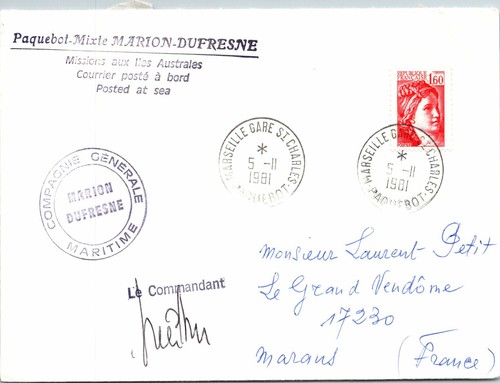 Paquebot-Mixte MARION-DUFRESNE
Missions aux Iles Australes
Courrier posté à bord
Posted at sea
1,60
MARSEILLE GARE ST CHARLES
*
5 -11
1981
PAQUEBOT
MARSEILLE GARE ST CHARLES
*
5 -11
1981
PAQUEBOT
COMPAGNIE GÉNÉRALE
MARION
DUFRESNE
MARITIME
Le Commandant
Monsieur Laurent Petit
Le Grand Vendôme
17230
Marans (France)